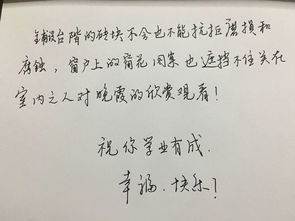 铺设台阶的砖块不今也不能抗拒磨损和
腐蚀，窗户上的窗花图案也遮挡不住关在
室内之人对晚霞的欣赏观看！
祝你学业有成.
幸福.快乐！